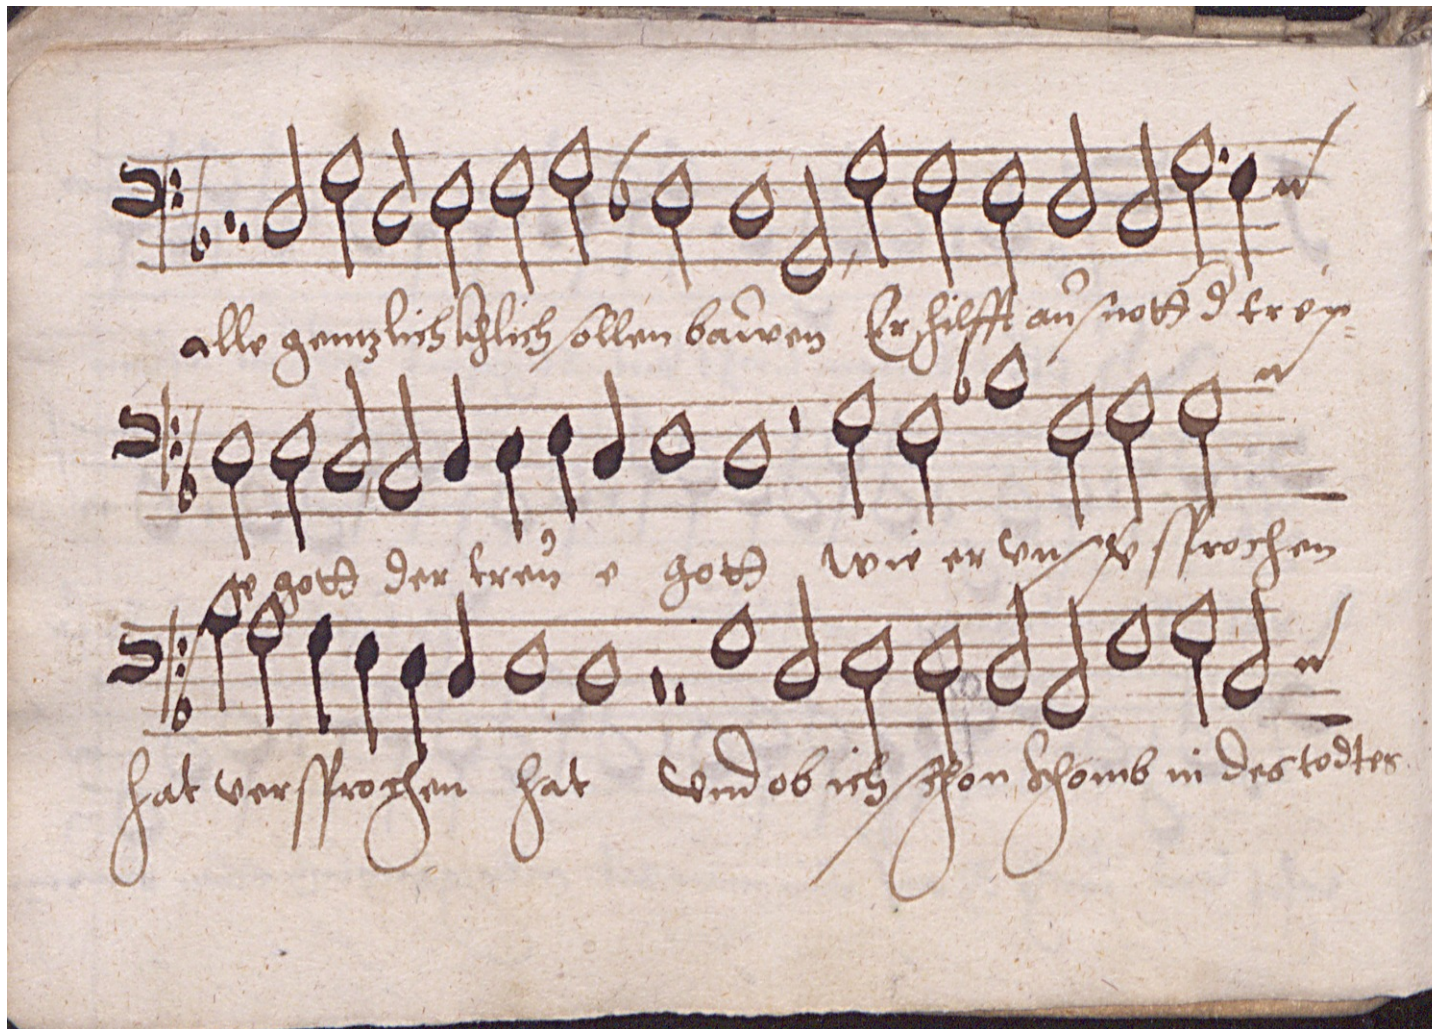 alle gentzlich khlich sollen bauwen Er hilfft aus nott d trew=
ge gott der treu e gott wie er vns versprochen
hat versprochen hat Vnd ob ich schon khomb in des todtes